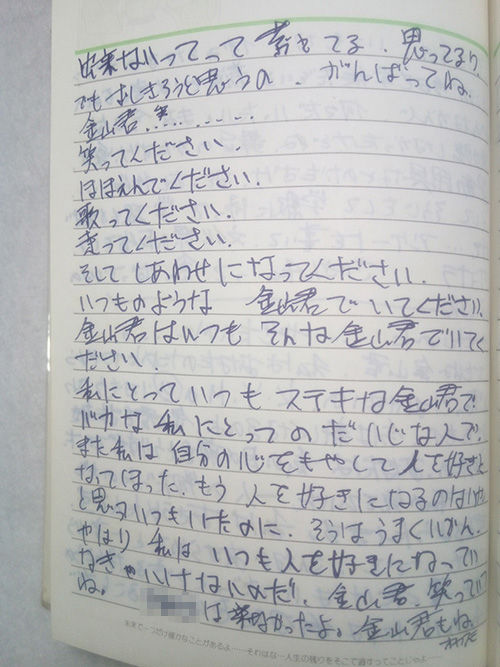 出来ないってって 考えてる、思ってるり、
でもましさろうと思うの、がんばってね。
金山君、笑...........
笑ってください。
ほほえんでください。
歌ってください。
走ってください。
そして しあわせになってください。
いつものような 金山君でいてください。
金山君はいつも そんな金山君でいてく
ださい。
私にとっていつも ステキな金山君で
バカな私にとっての だいじな人で、
また私は 自分の心をもやして 人を好きに
なってしまった、もう 人を好きになるのはいや
と思っていつもいたのに、そうは うまくいかん。
やはり 私は いつも人を好きになってい
なきゃ いけないのだ、金山君、笑ってい
ね。 は 楽しかったよ。金山君もね
未来で一つだけ確かなことがあるよ……それはな…人生の残りをそこで過すってことじゃよ……